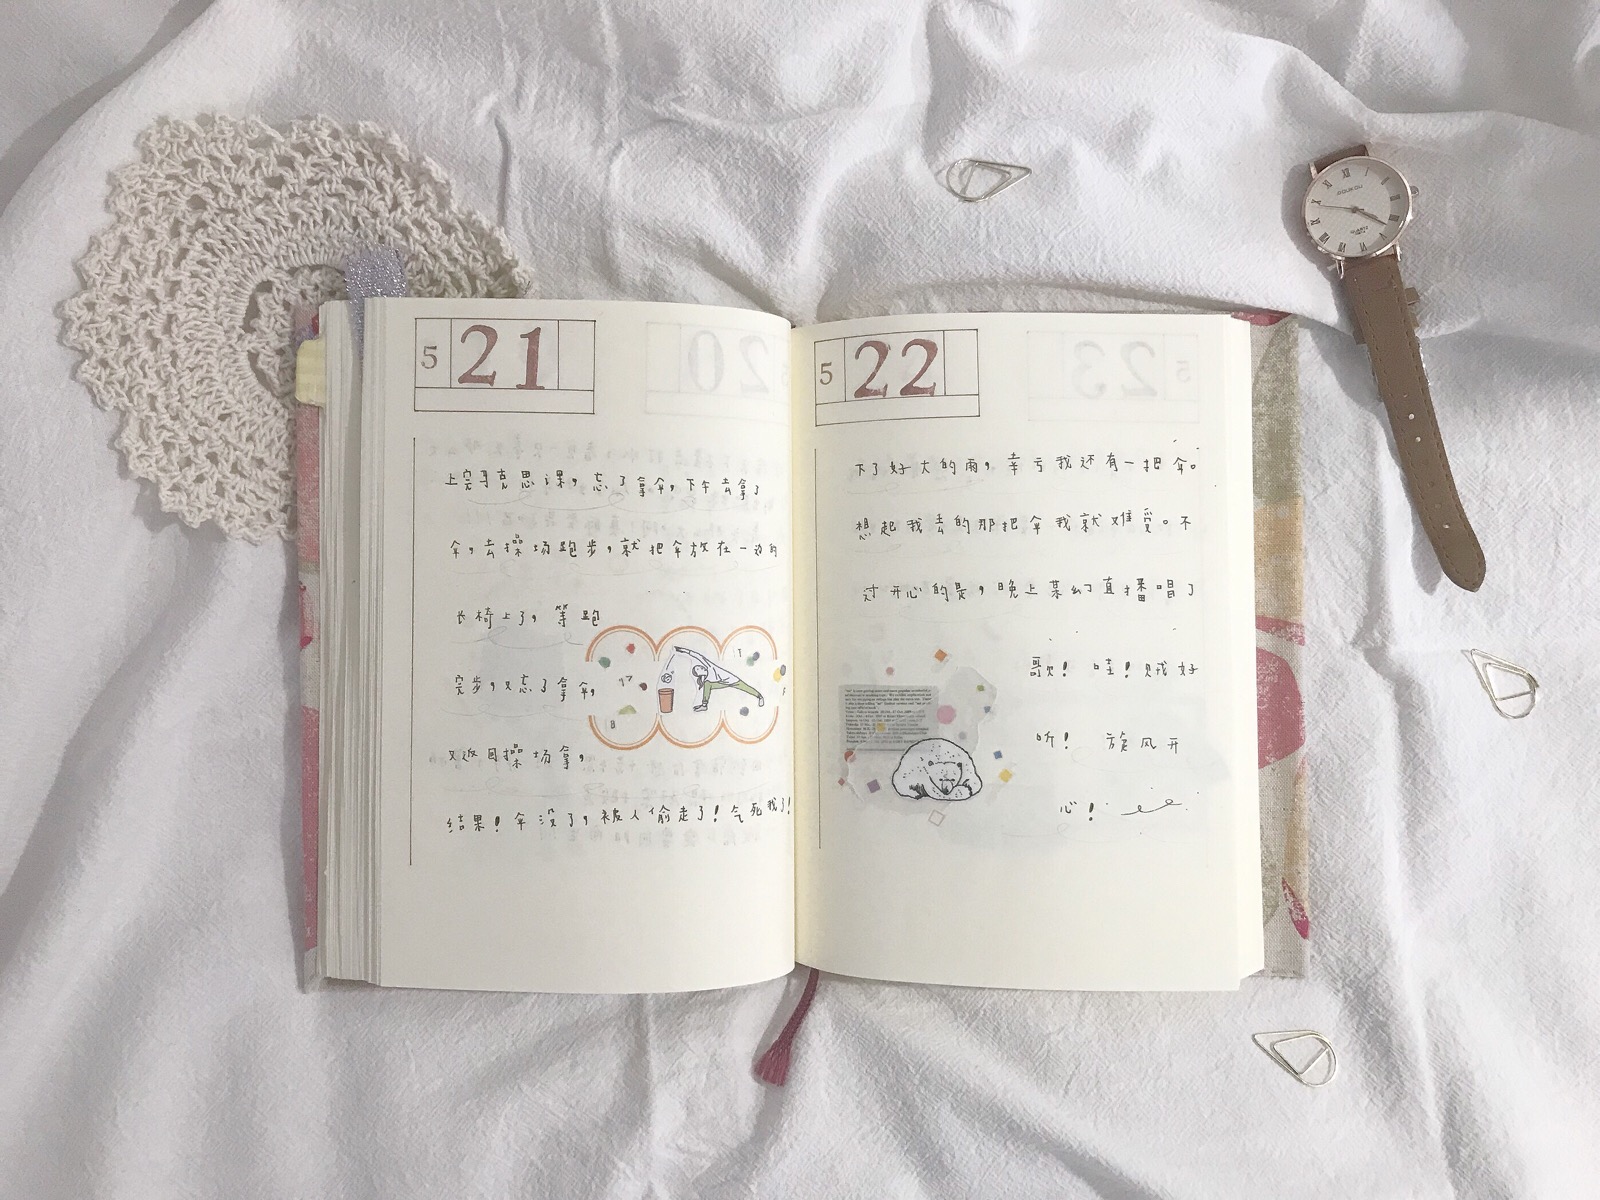 5 21
上完马克思课，忘了拿伞，下午去拿了
伞，去操场跑步，就把伞放在一边的
长椅上了，等跑
完步，又忘了拿伞，
又返回操场拿，
结果！伞没了，被人偷走了！气死我了！
5 22
下了好大的雨，幸亏我还有一把伞。
想起我丢的那把伞我就难受。不
过开心的是，晚上某幻直播唱了
歌！哇！贼好
听！旋风开
心！